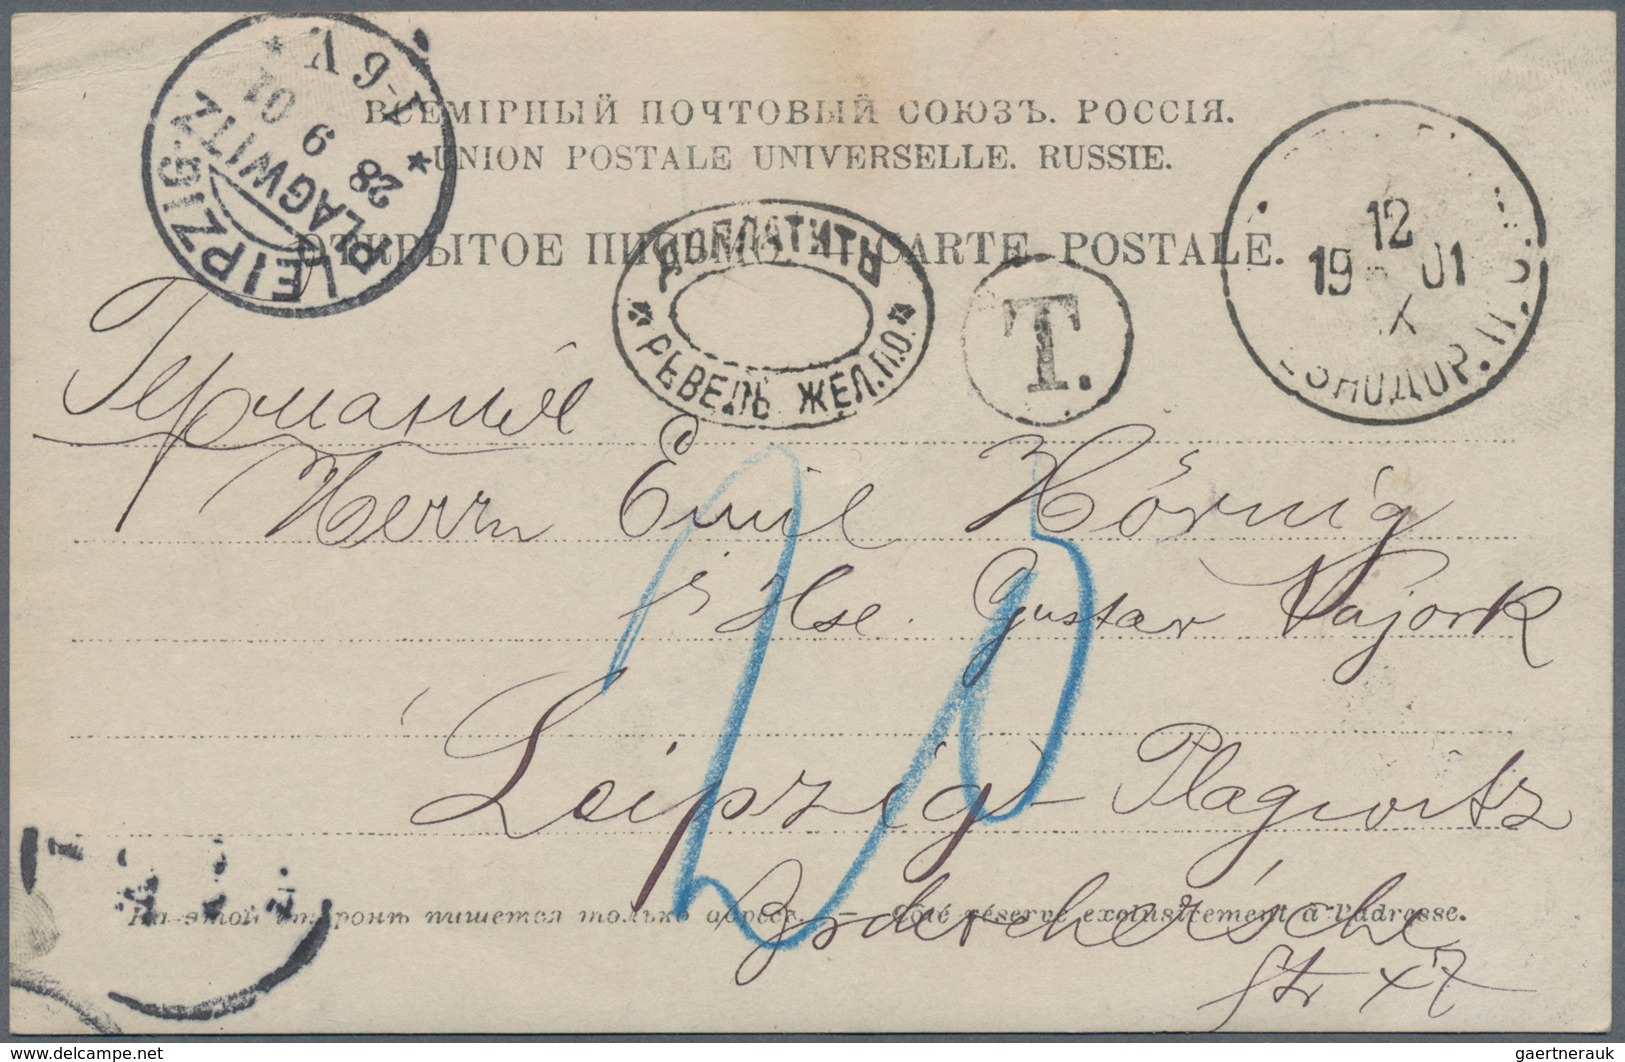 ВСЕМІРНЫЙ ПОЧТОВЫЙ СОЮЗЪ. РОССІЯ.
UNION POSTALE UNIVERSELLE. RUSSIE.
ОТКРЫТОЕ ПИСЬМО. — CARTE POSTALE.
LEIPZIG-PLAGWITZ
28 9 01
5-6 V.
ДОПЛАТИТЬ
ЖЕЛ.П.О.
T.
12
19 01
X
Германия
Herrn Emil Hörnig
Hse. Gustav Vajork
Leipzig-Plagwitz
Str 47
На этой сторонѣ пишется только адресъ. — Côté réservé exclusivement à l'adresse.
gaertnerauk
delcampe.net